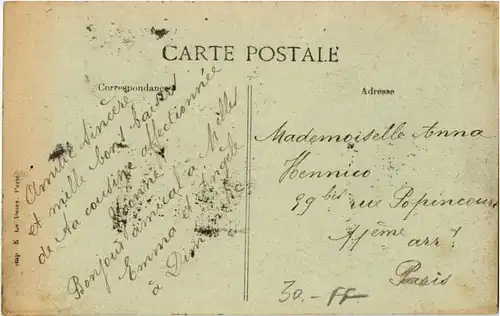 CARTE POSTALE
Correspondance
Adresse
Amitié sincère
et mille bons baisers
de ta cousine affectionnée
Bonjour amical à Melles
Emma et Angèle
à Dimanche
Mademoiselle Anna
Hennico
99 bis rue Popincourt
11ème arrt
Paris
30.- FF
Imp. E. Le Deley, Paris